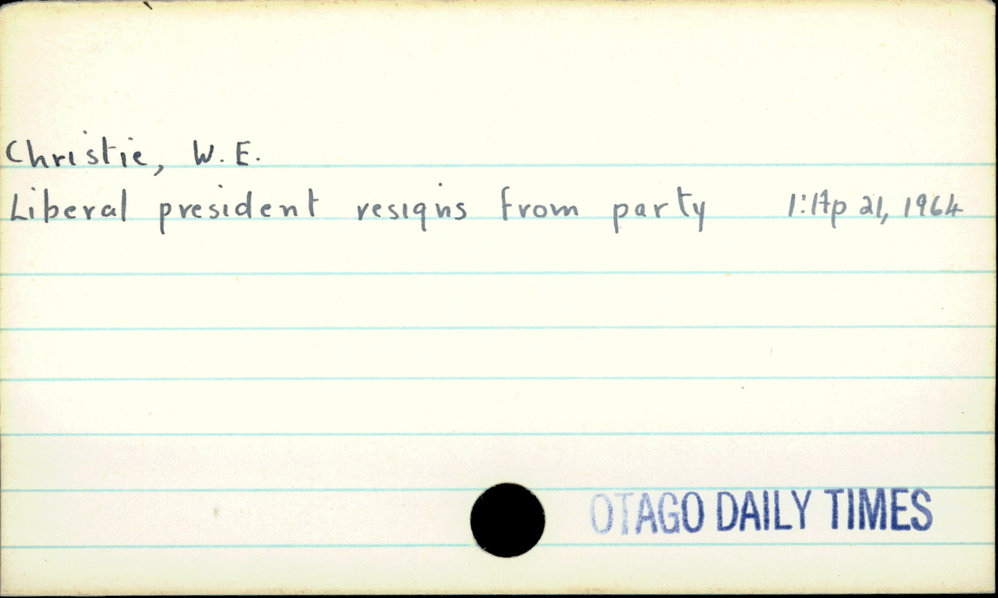 Christie, W. E.
Liberal president resigns from party 1:Ap 21, 1964
OTAGO DAILY TIMES